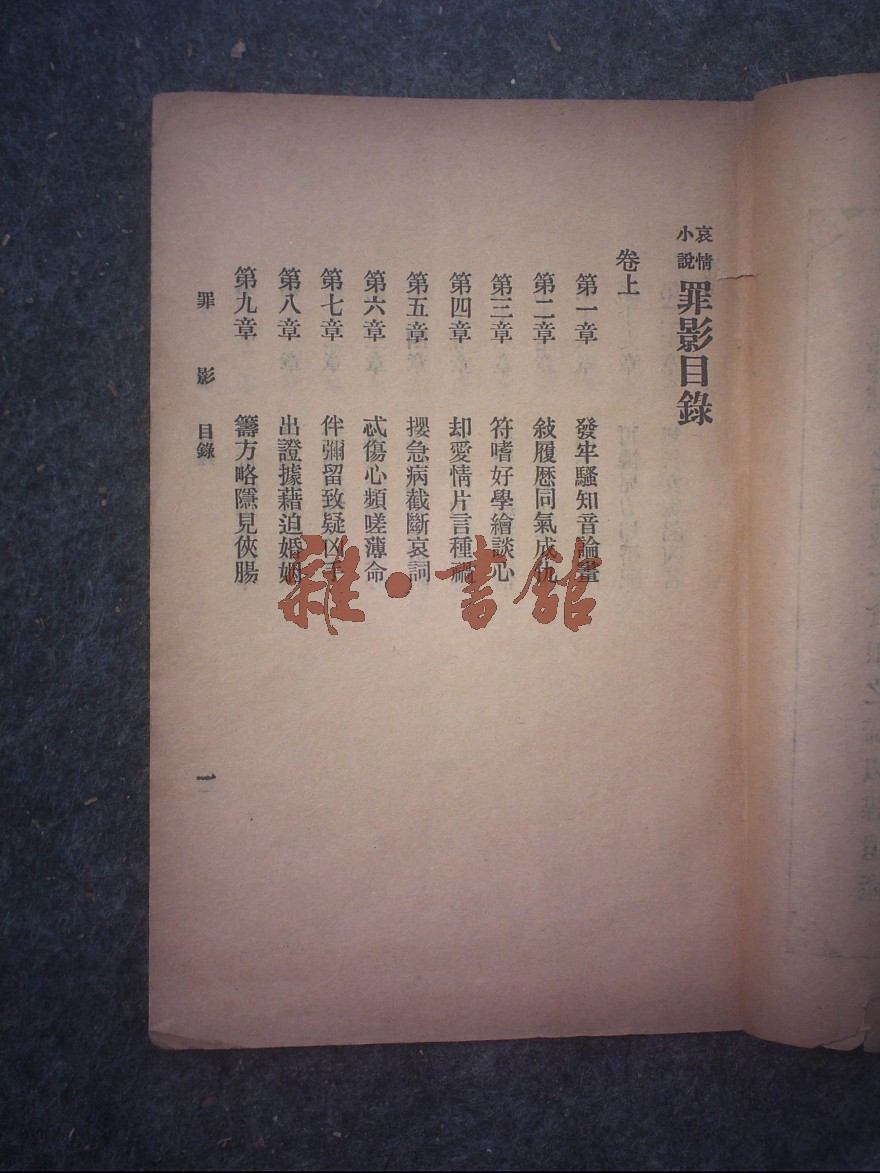 哀情小說 罪影目錄
卷上
第一章 發牢騷知音論畫
第二章 敍履歷同氣成仇
第三章 符嗜好學繪談心
第四章 却愛情片言種禍
第五章 攖急病截斷哀詞
第六章 忒傷心頻嗟薄命
第七章 伴彌留致疑凶手
第八章 出證據藉迫婚姻
第九章 籌方略隱見俠腸
罪影 目錄 一
雜·書館